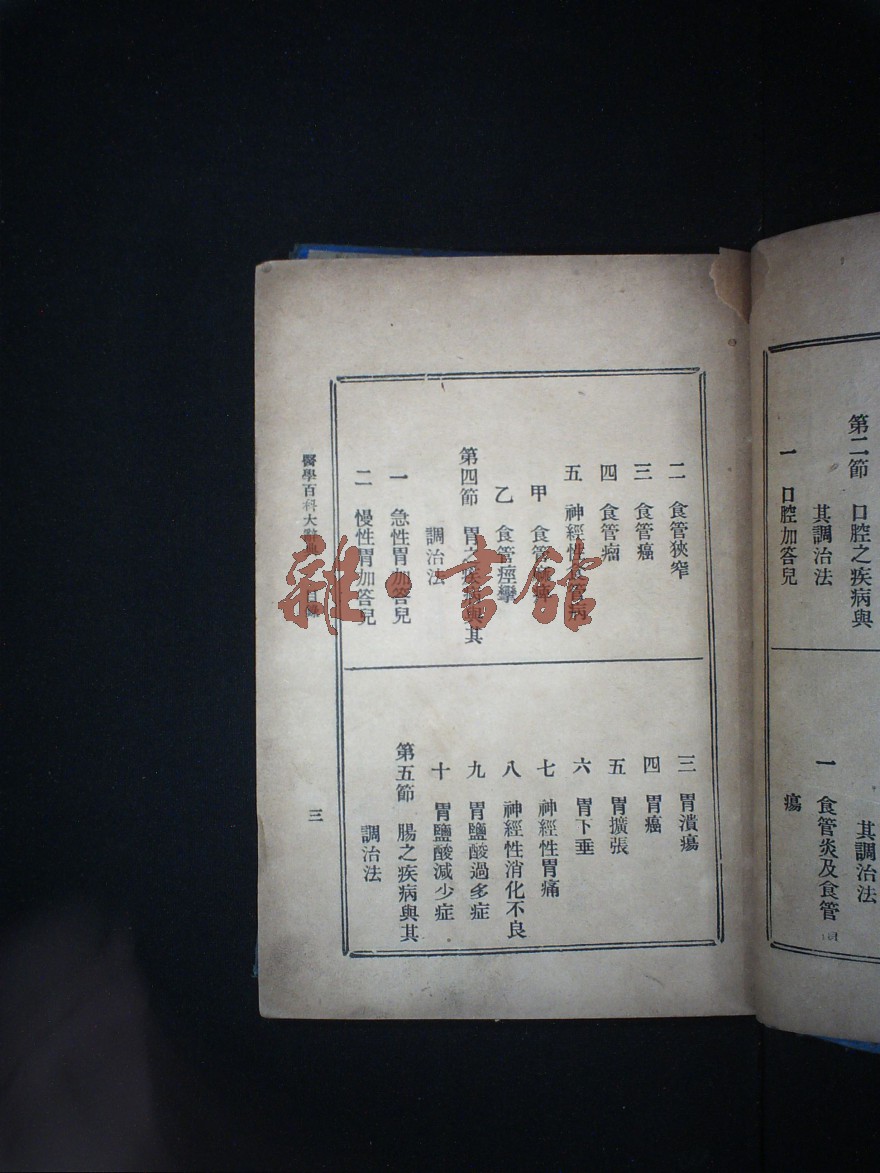 第二節　口腔之疾病與
其調治法
一　口腔加答兒
其調治法
一　食管炎及食管
瘍
二　食管狹窄
三　食管癌
四　食管瘤
五　神經性食管病
甲　食管
乙　食管痙攣
第四節　胃之疾病與其
調治法
一　急性胃加答兒
二　慢性胃加答兒
三　胃潰瘍
四　胃癌
五　胃擴張
六　胃下垂
七　神經性胃痛
八　神經性消化不良
九　胃鹽酸過多症
十　胃鹽酸減少症
第五節　腸之疾病與其
調治法
醫學百科大辭典　目錄
三
雜·書館